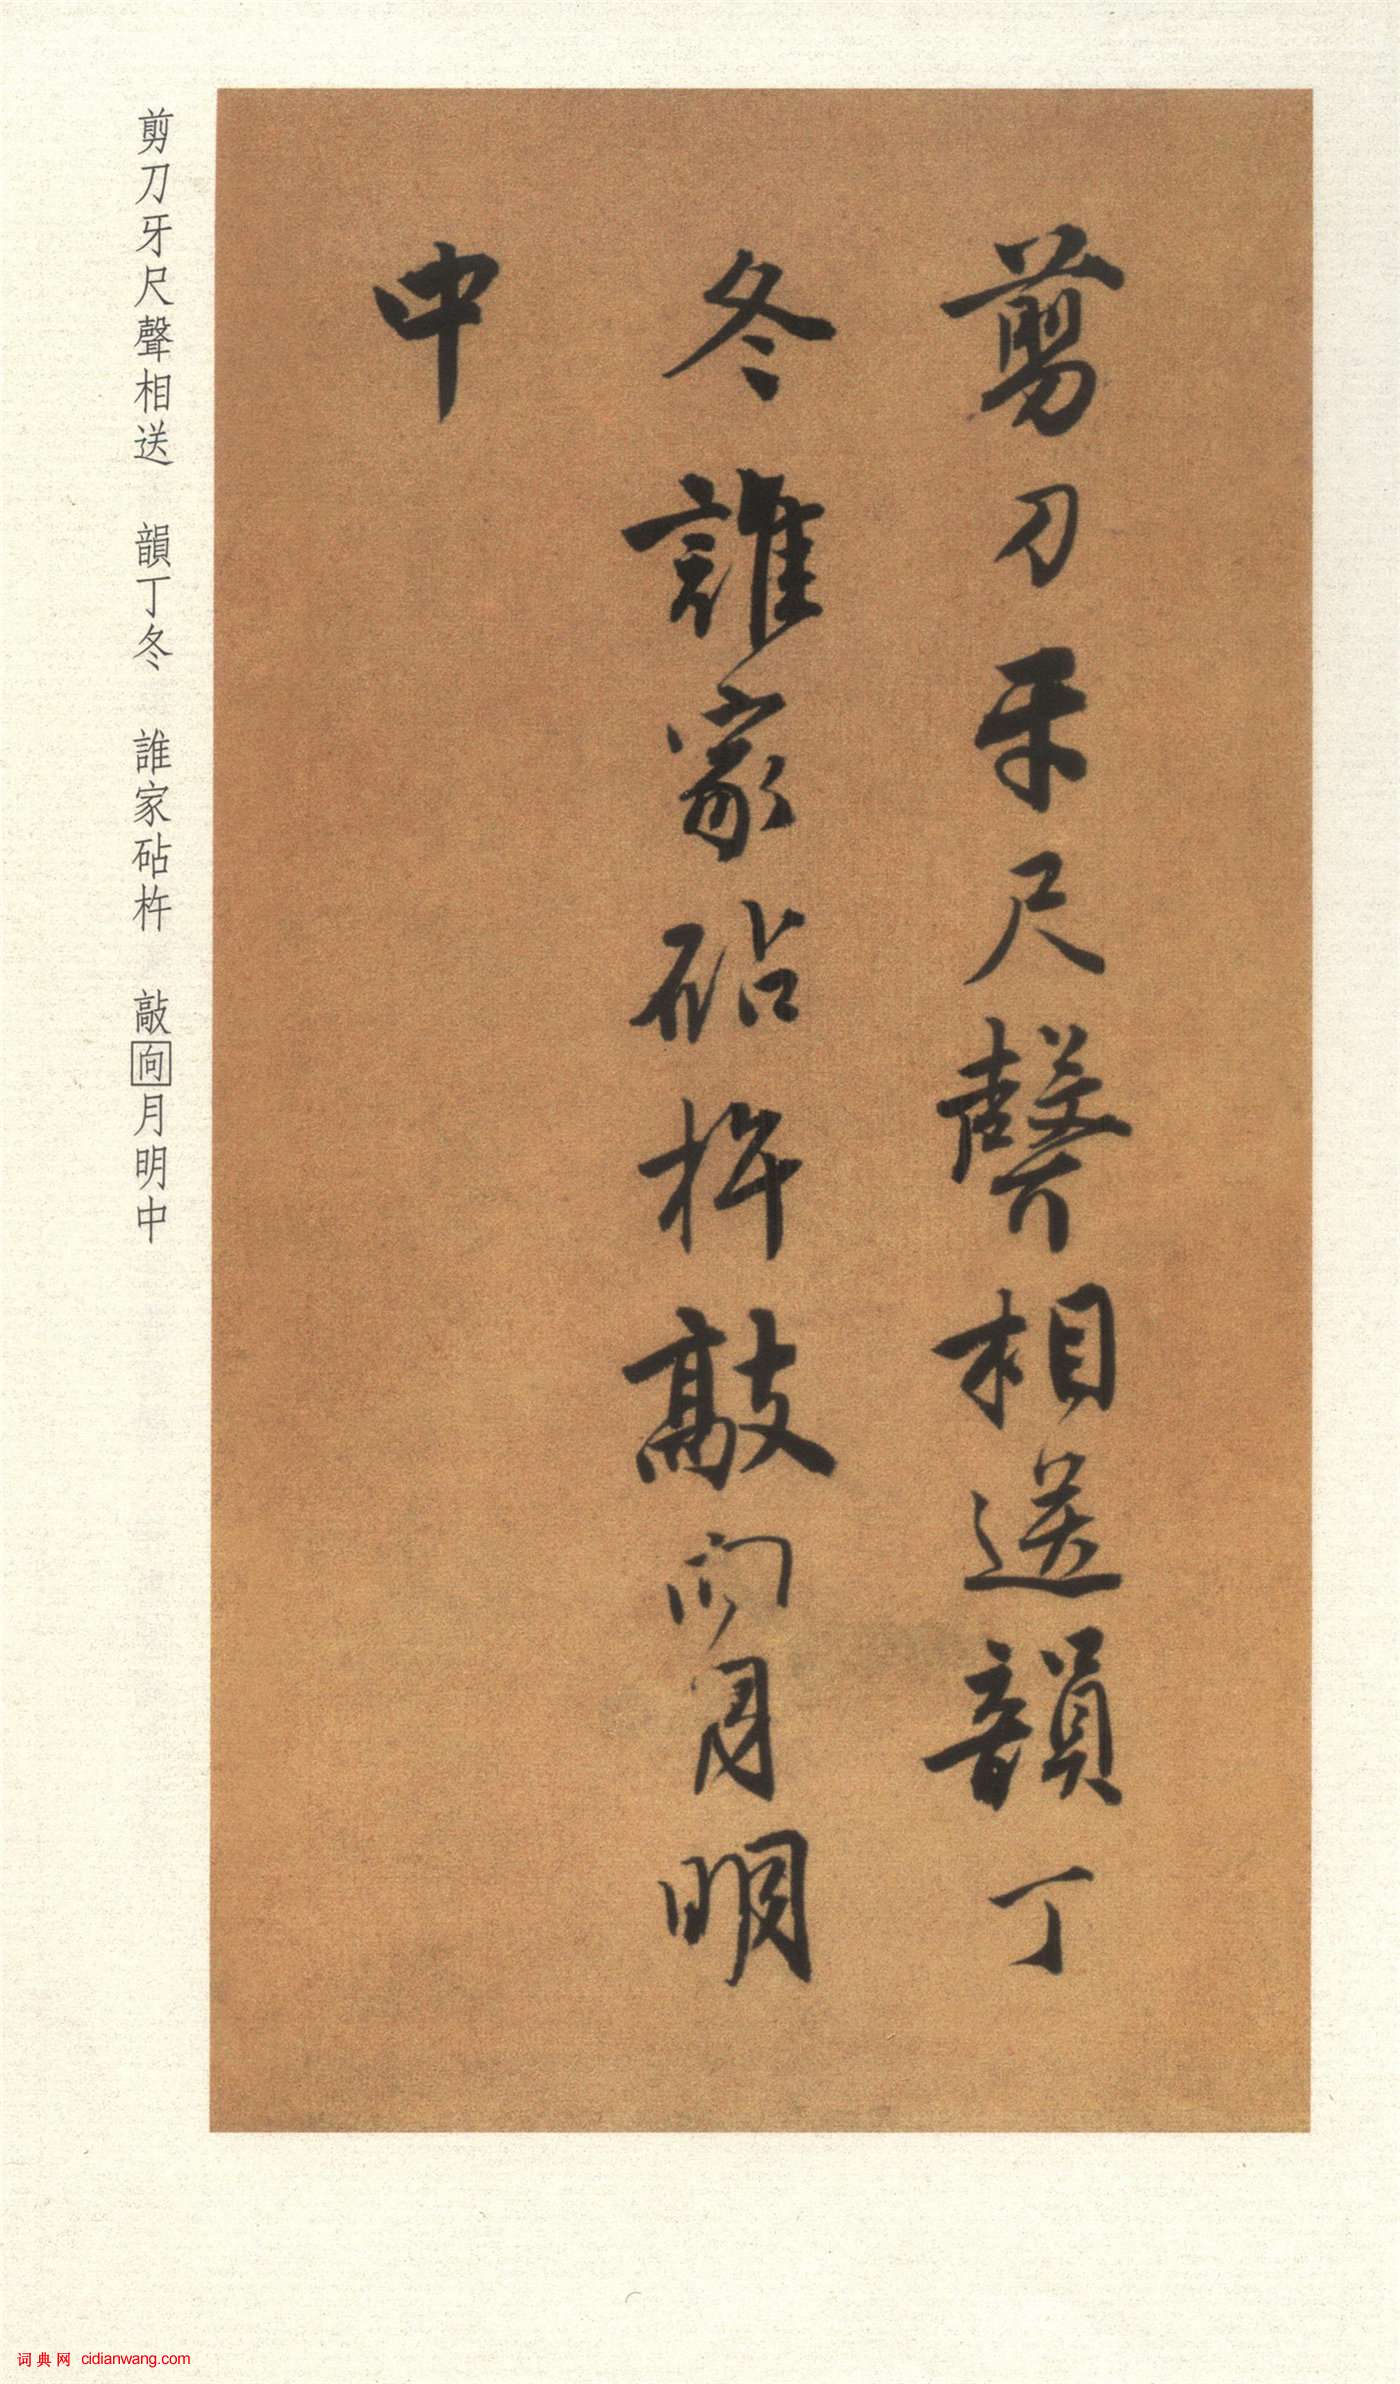 剪刀牙尺聲相送韻丁
冬誰家砧杵敲向月明
中
剪刀牙尺聲相送　韻丁冬　誰家砧杵　敲向月明中
词典网 cidianwang.com